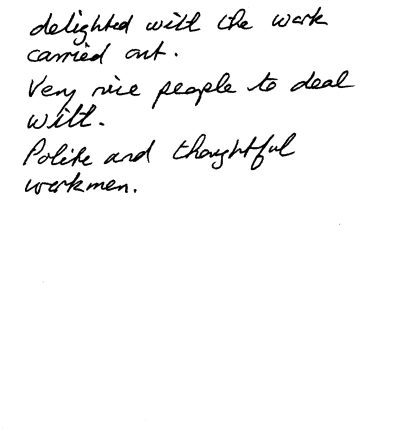 delighted with the work
carried out.
Very nice people to deal
with.
Polite and thoughtful
workmen.